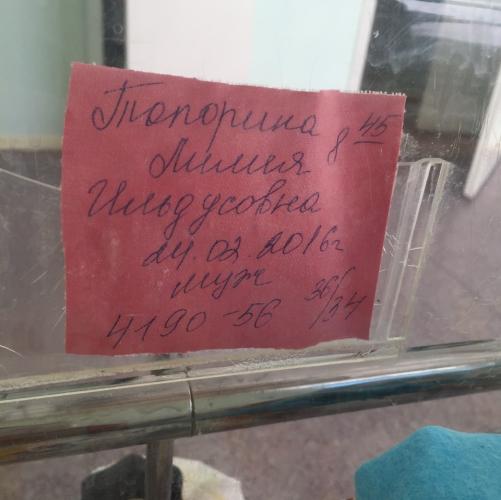 Топорина 8 45
Лилия
Ильдусовна
24.02.2016г
муж
4190-56 36/34